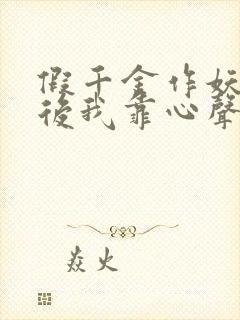 假千金作妖
後我靠心聲
焱火